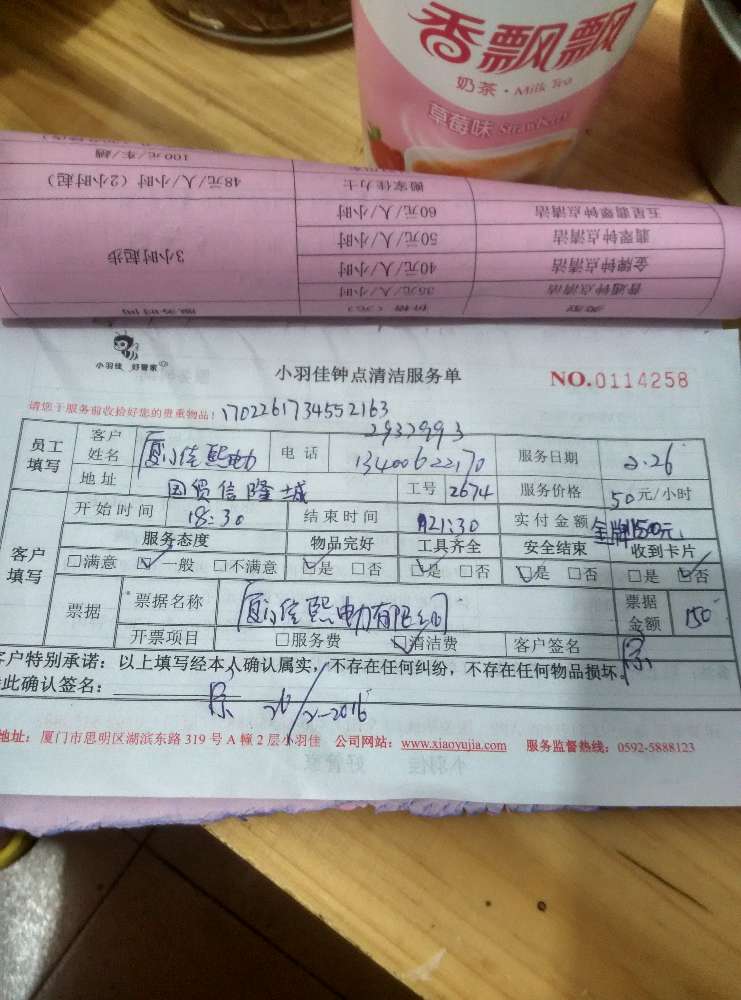 香飘飘
奶茶·Milk Tea
草莓味 Strawberry
100元/车/趟
搬家佳力士 48元/人/小时（2小时起）
五星翡翠钟点清洁 60元/人/小时
翡翠钟点清洁 50元/人/小时 3小时起步
金牌钟点清洁 40元/人/小时
普通钟点清洁 35元/人/小时
类型 价格（元） 服务时间
小羽佳 好管家
小羽佳钟点清洁服务单 NO.0114258
请您于服务前收拾好您的贵重物品！1702261734552163
2937993
员工填写 客户姓名 厦门佳熙电力 电话 13400622170 服务日期 2.26
地址 国贸信隆城 工号 2674 服务价格 50元/小时
客户填写 开始时间 18:30 结束时间 21:30 实付金额 金牌150元
服务态度 物品完好 工具齐全 安全结束 收到卡片
□满意 ☑一般 □不满意 ☑是 □否 ☑是 □否 ☑是 □否 □是 ☑否
票据 票据名称 厦门佳熙电力有限公司 票据金额 150
开票项目 □服务费 ☑清洁费 客户签名
客户特别承诺：以上填写经本人确认属实，不存在任何纠纷，不存在任何物品损坏。
此确认签名： 26/2-2016
地址：厦门市思明区湖滨东路319号A幢2层小羽佳 公司网站：www.xiaoyujia.com 服务监督热线：0592-5888123